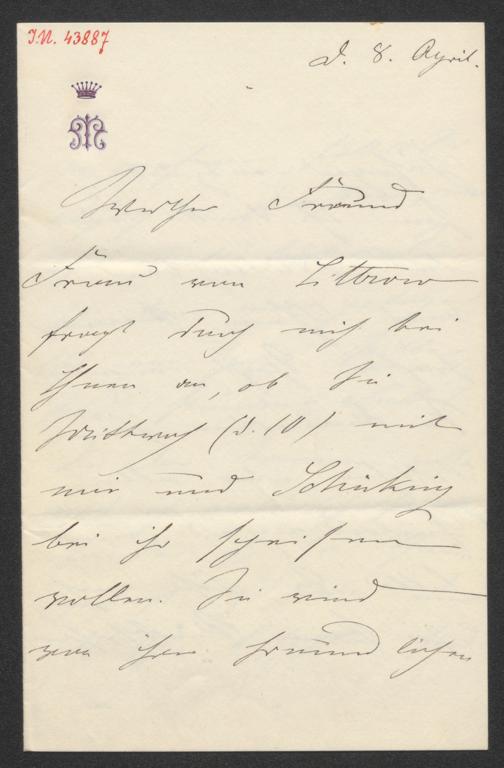 I.N. 43887
d. 8. April.
Werther Freund
Frau von Littrow
fragt durch mich bei
Ihnen an, ob Sie
Mittwoch (d. 10) mit
mir und Schücking
bei ihr speisen
wollen. Sie wird
von ihren freundlichen